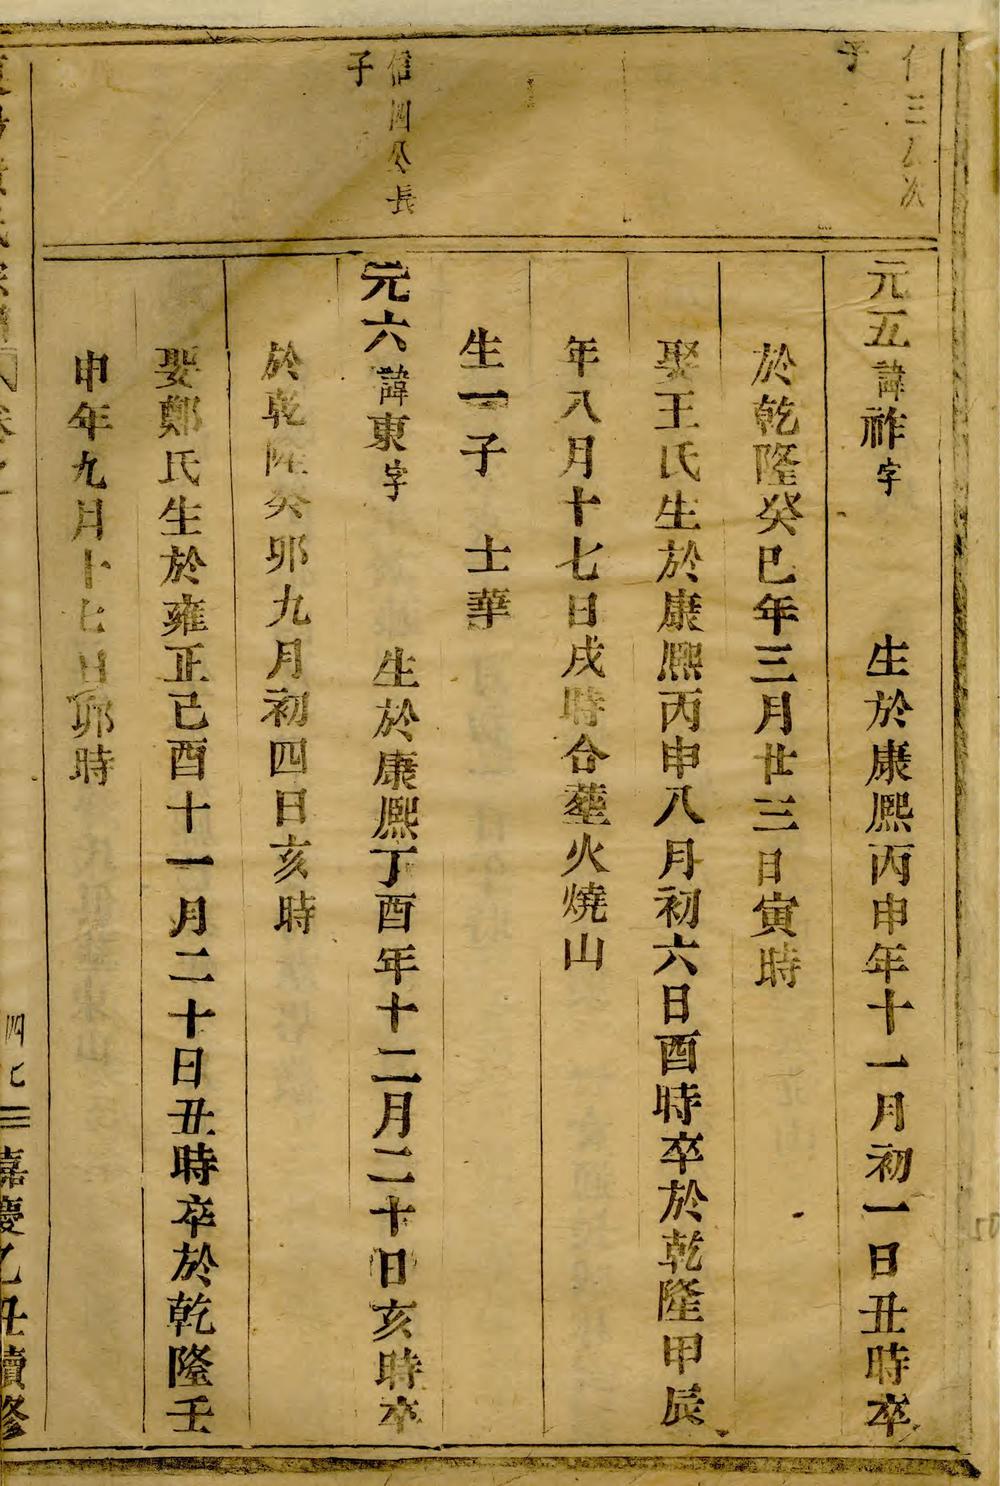 三公次
子
元五諱祚字 生於康熈丙申年十一月初一日丑時卒
於乾隆癸巳年三月廿三日寅時
娶王氏生於康熈丙申八月初六日酉時卒於乾隆甲辰
年八月十七日戌時合塟火燒山
生一子 士華
信四公長
子
元六諱東字 生於康熈丁酉年十二月二十日亥時卒
於乾隆癸卯九月初四日亥時
娶鄭氏生於雍正己酉十一月二十日丑時卒於乾隆壬
申年九月十七日卯時
氏宗 卷之 四七 嘉慶乙丑續修